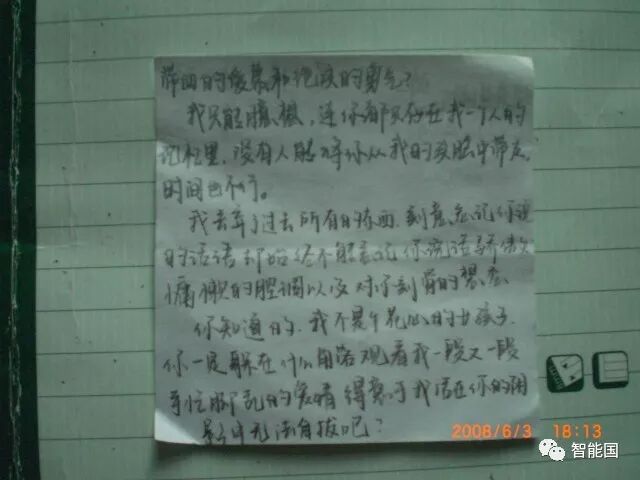 带回的羡慕和绝决的勇气?
我只能臆想,连你都只存在我一个人的
记忆里,没有人能将你从我的脑中带走。
时间也不行。
我丢弃了过去所有的东西,刻意忘记你说
的话语却始终不能忘记你说话骄傲又
慵懒的腔调以及对你刻骨的想念。
你知道的,我不是个花心的女孩子,
你一定躲在什么角落观看我一段又一段
手忙脚乱的爱情得意吗我活在你的阴
影中无法自拔吧?
2008/6/3 18:13
智能国